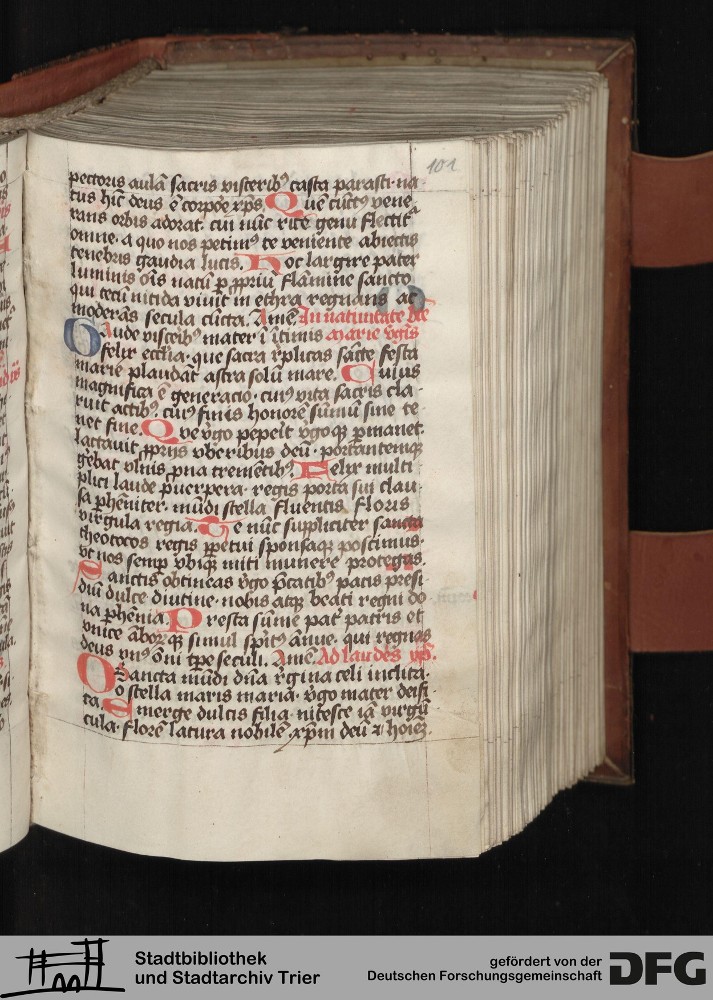 101
pectoris aulā sacris visceribꝰ casta parasti· na
tus hīc deus ē corpoꝛe xp̄s. Quē cūctꝰ vene
rans orbis adorat· cui nūc rite genu flectit᷑
omne· a quo nos petimꝰ te veniente abiectis
tenebris gaudia lucis. Hoc largire pater
luminis oīs natū ꝑ ꝓpriū flamine sancto
qui tecū nitida viuit in ethra regnans ac
moderās secula cūcta. Amē. In natiuitate bte
Gaude visceribꝰ mater ī ītimis marie vgīs
felix ecctīa· que sacra rp̄licas sācte festa
marie plaudāt astra solū mare. Cuius
magnifica ē generacio· cuiꝰ vita sacris cla
ruit actibꝰ, cuiꝰ finis honorē sūmū sine te
net fine. Que v̄go peperit v̄goqꝫ ꝑmanet·
lactauit ꝓprijs vberibus deū· portantemqꝫ
gēbat vlnis pna trementibꝰ Felix multi
plici laude puerpera· regis porta sui clau
sa ꝑhēniter· mūdi stella fluentis floris
virgula regia. Te nūc supliciter sancta
theotocos regis ꝑpetui sponsaqꝫ poscimus·
vt nos semꝑ vbiqꝫ miti munere protegas.
Sanctis obtineas v̄go p̄catibꝰ pacis presi
diū dulce diutine· nobis atqꝫ beati regni do
na ꝑhēnia. Presta sūme pat᷑ patris et
vnice āborqꝫ simul sp̄itꝰ ānue· qui regnas
deus vnꝰ ōni tꝑe seculi. Amē. Ad laudes yp̄.
O Sancta mūdi dn̄a r̄gina celi inclita·
o stella maris maria· v̄go mater deifi
ca. Emerge dulcis filia· nitesce iā virgū
cula· florē latura nobilē xp̄m deū ⁊ hoīeꝫ.
Stadtbibliothek
und Stadtarchiv Trier
gefördert von der
Deutschen Forschungsgemeinschaft
DFG